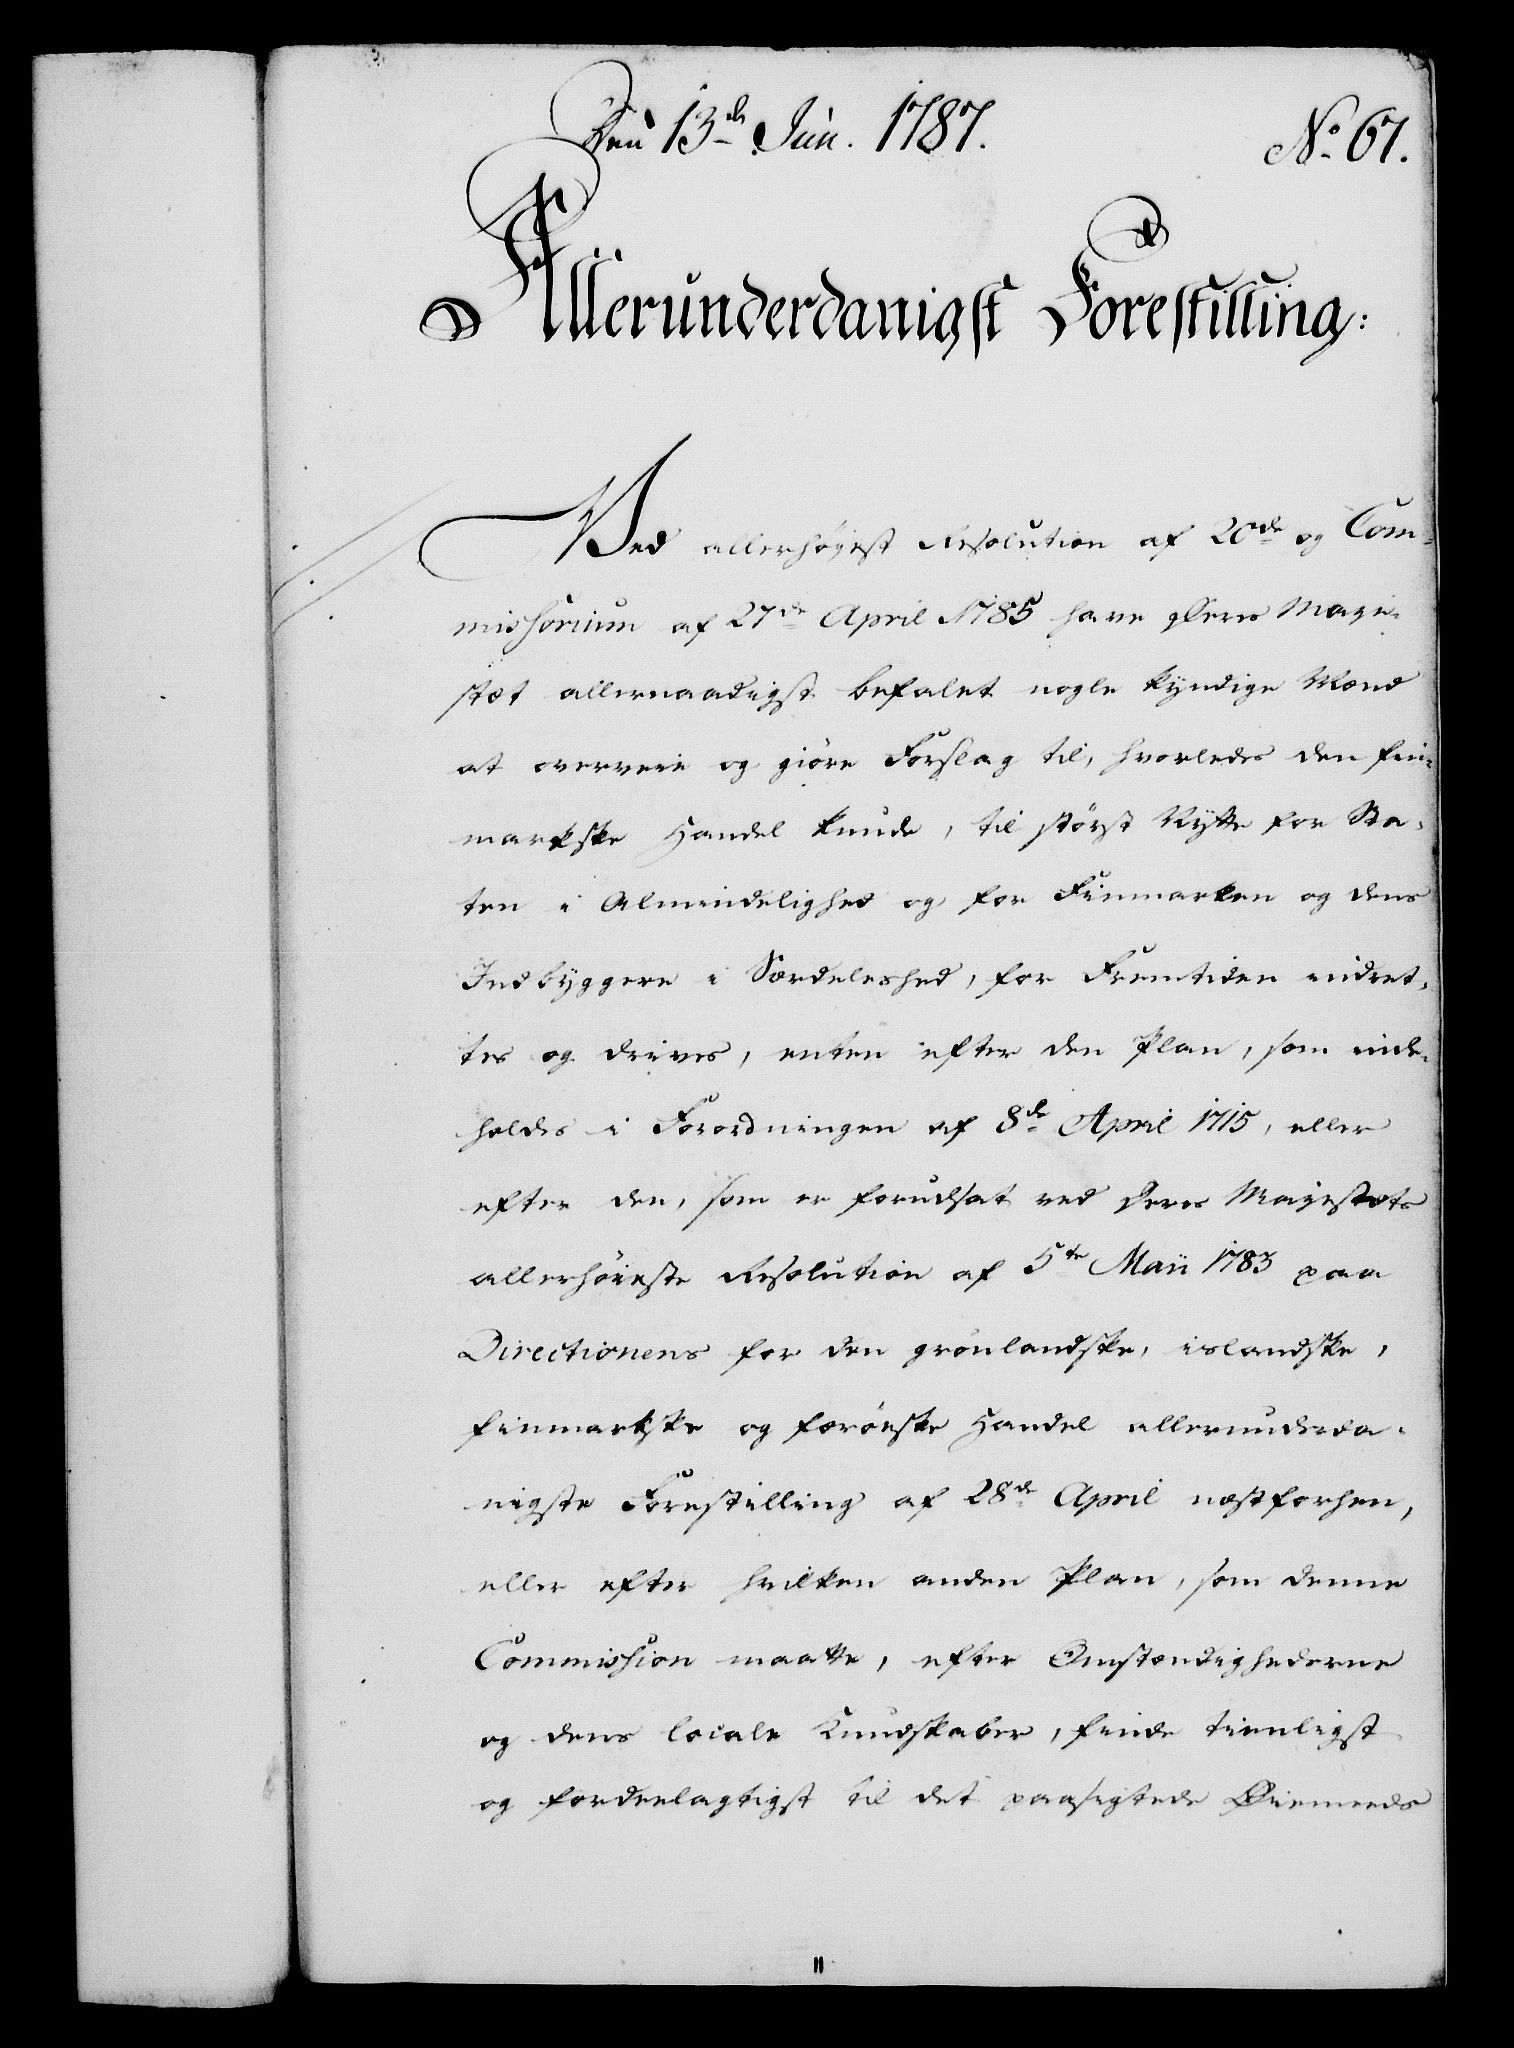 Den 13de Jun. 1787.
No. 67.
Allerunderdanigst Forestilling:
Ved allerhøyest Resolution af 20de og Com-
missorium af 27de April 1785 have Deres Maje-
stæt allernaadigst befalet nogle kyndige Mænd
at overveie og giöre Forslag til, hvorledes den fin-
markske Handel kunde, til störst Nytte for Sta-
ten i Almindelighed og for Finmarken og dens
Indbyggere i Særdeleshed, for Fremtiden indret-
tes og drives, enten efter den Plan, som inde-
holdes i Forordningen af 8de April 1715, eller
efter den, som er forudsat ved Deres Majestæts
allerhöieste Resolution af 5te Maii 1783 paa
Directionens for den grönlandske, islandske,
finmarkske og færöeske Handel allerunderda-
nigste Forestilling af 28de April næstforhen,
eller efter hvilken anden Plan, som denne
Commission maatte, efter Omstændighederne
og dens locale Kundskaber, finde tienligst
og fordeelagtigst til det paasigtede Øiemeeds
11